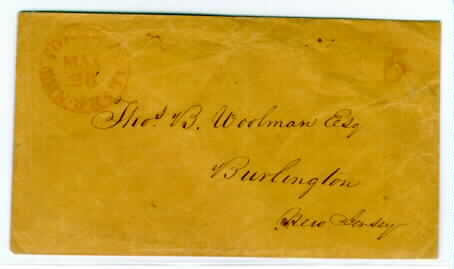 MAY
26
5
Thos. B. Woolman Esq
Burlington
New Jersey